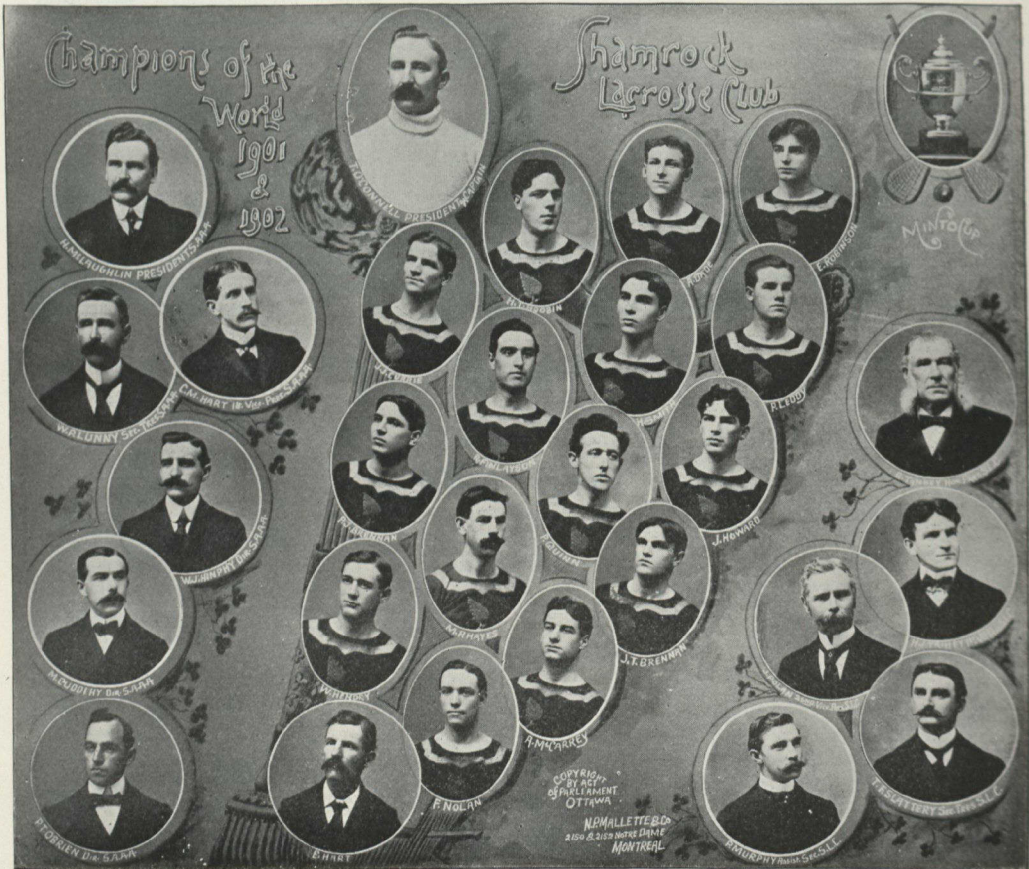 Champions of the
World
1901
&
1902
Shamrock
Lacrosse Club
MINTO CUP
PRESIDENT & CAPTAIN
H. McLAUGHLIN PRESIDENT S.A.A.A
C.M. HART 1st Vice-Pres. S.A.A.A
W.P. LUNNY Sec. Treas. S.A.A.A
W.J. HINPHY Dir. S.A.A.A
M. CUDDIHY Dir. S.A.A.A
P.T. O'BRIEN Dir. S.A.A.A
B. HART
E. ROBINSON
J. CURRIE
P. LEDDY
FINLAYSON
J. HOWARD
P. BRENNAN
M.P. HAYES
J.T. BRENNAN
W. HENSEY
A. McCARREY
F. NOLAN
T. SLATTERY Sec. Treas. S.L.C.
P. MURPHY Assist. Sec. S.L.C.
COPYRIGHT
BY ACT
of PARLIAMENT
OTTAWA
N.P. MALLETTE & Co
2150 & 2152 NOTRE DAME
MONTREAL